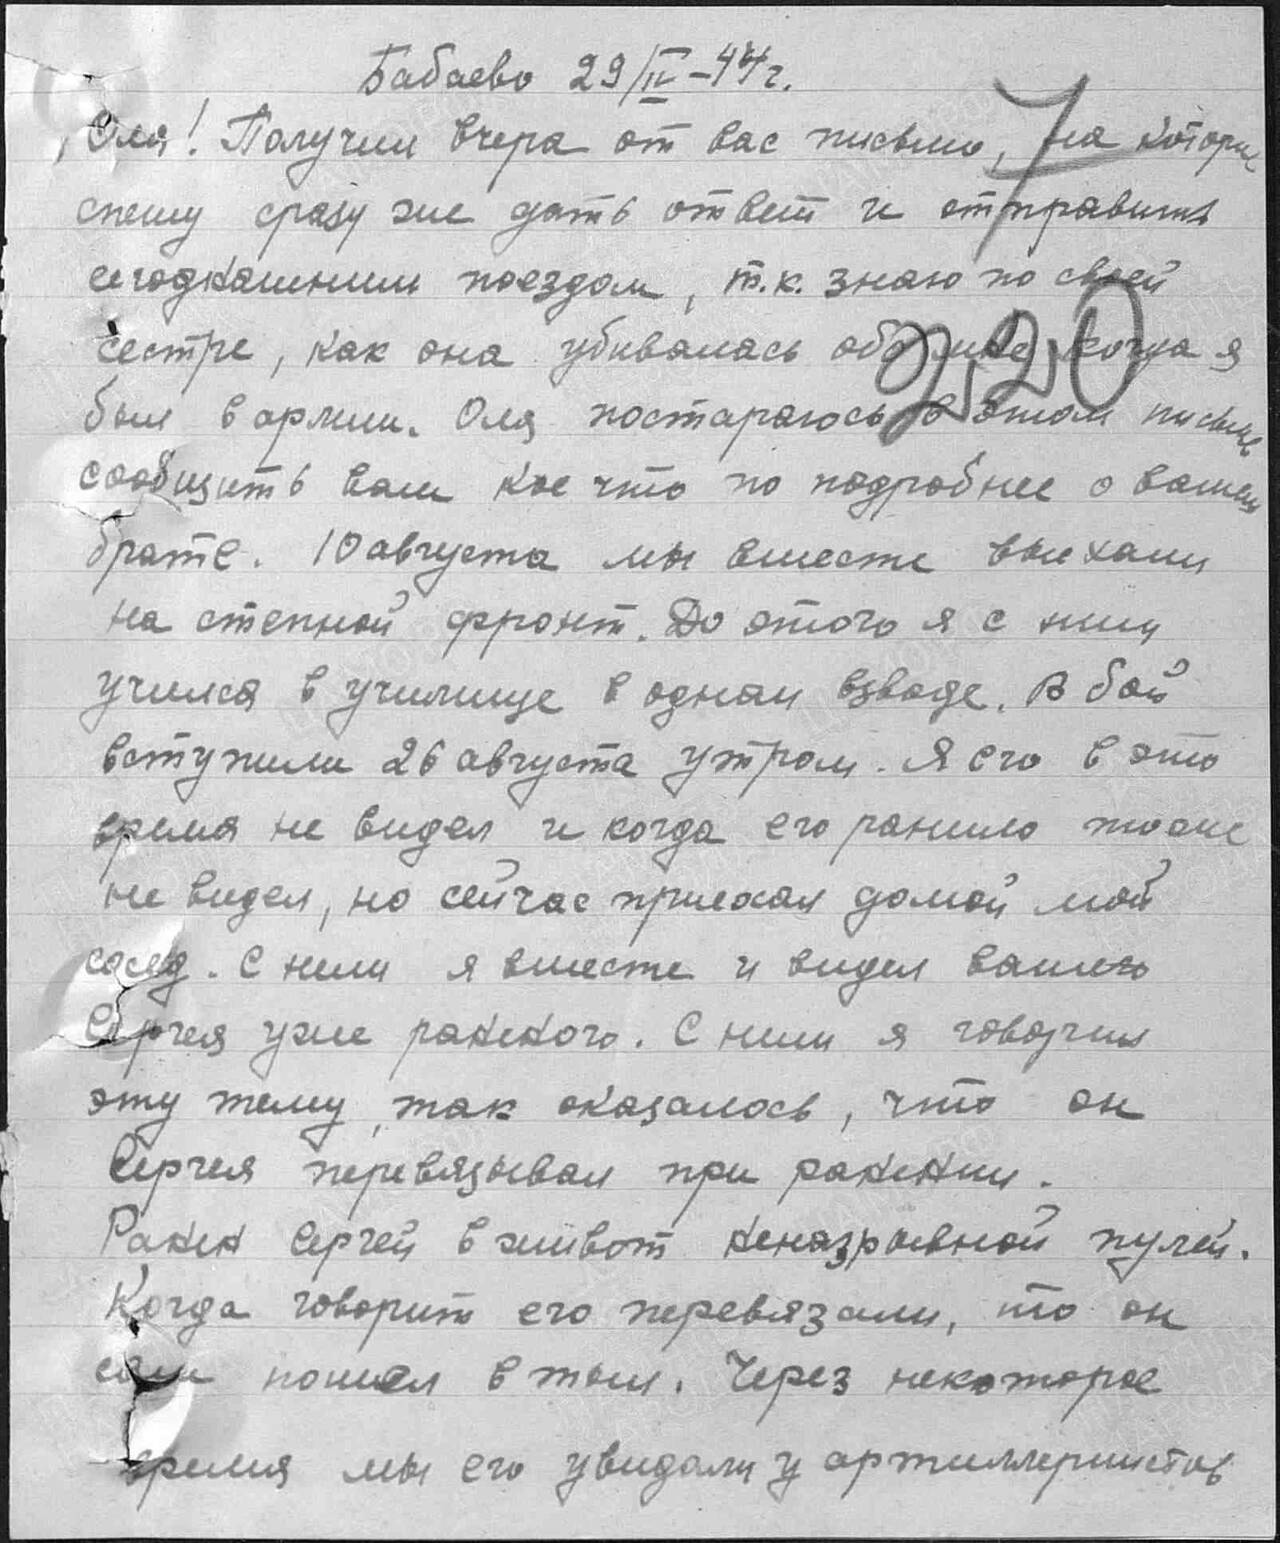 Бабаево 29/IV-44г.
7
Оля! Получил вчера от вас письмо, на которое
спешу сразу же дать ответ и отправить
сегодняшним поездом, т.к. знаю по своей
сестре, как она убивалась обо мне когда я
220
был в армии. Оля постараюсь в этом письме
сообщить вам кое что по подробнее о вашем
брате. 10 августа мы вместе выехали
на степной фронт. До этого я с ним
учился в училище в одном взводе. В бой
вступили 26 августа утром. Я его в это
время не видел и когда его ранило тоже
не видел, но сейчас приехал домой мой
сосед. С ним я вместе и видел вашего
Сергея уже раненого. С ним я говорил
эту тему, так оказалось, что он
Сергея перевязывал при ранении.
Ранен Сергей в живот неназрывной пулей.
Когда говорит его перевязали, то он
сам пошел в тыл. Через некоторое
время мы его увидали у артиллеристов